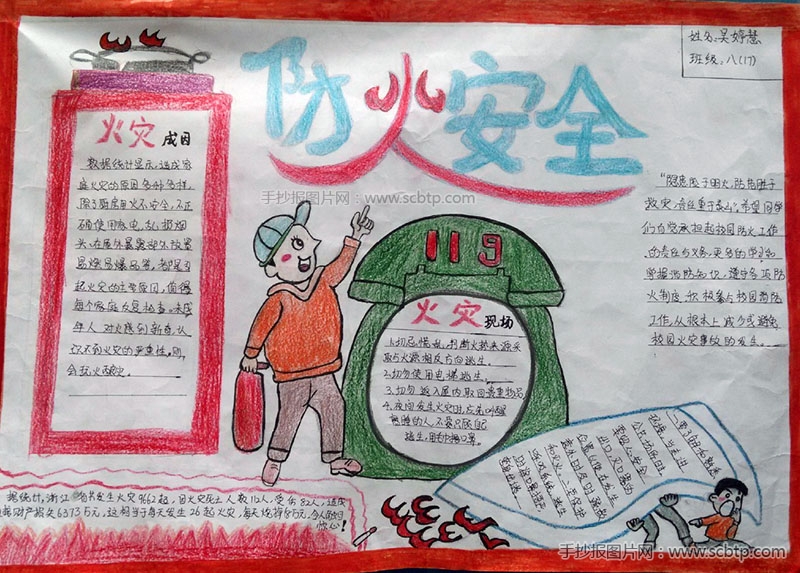 姓名:吴婷慧
班级:八(17)
防火安全
手抄报图片网:www.scbtp.com
火灾 成因
数据统计显示,造成家
庭火灾的原因多种多样,
除了厨房用火不安全,不正
确使用家电,乱扔烟
头,在屋外
易燃易爆品等,都是引
起火灾的主要原因,值得
每个家庭反复检查。未成
年人 对火感到新奇,认
识不到火灾的严重性,则
会玩火酿灾。
119
火灾 现场
1.切忌慌乱,判断火势来源,采
取与火源相反方向逃生。
2.切勿使用电梯逃生。
3.切勿返入屋内取回贵重物品
4.夜间发生火灾时,应先叫醒
熟睡的人,不要只顾自己
逃生,用毛巾捂口罩。
"隐患险于明火,防范胜于
救灾,责任重于泰山",希望同学
们自觉承担起校园防火工作
的责任与义务,更多的学习和
掌握消防知识,遵守各项防
火制度,积极参与校园消防
工作,从根本上减少或避免
校园火灾事故的发生。
据统计,浙江 发生火灾9662起,因火灾死亡人数116人,受伤82人,造成
财产损失6373万元,这相当于每天发生26起火灾,每天烧掉 万元,令人
惊心!
手抄报图片网:www.scbtp.com